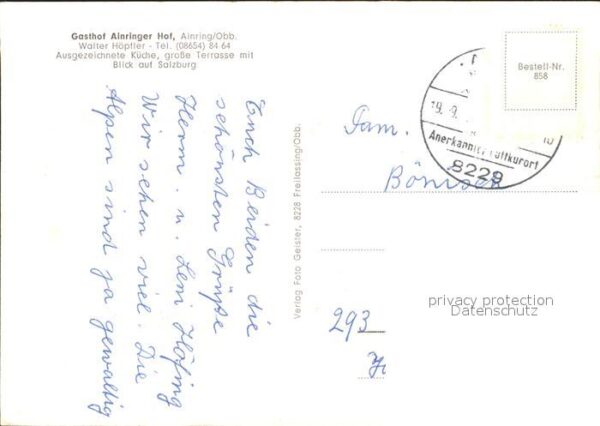 Gasthof Ainringer Hof, Ainring/Obb.
Walter Höpfler - Tel. (08654) 84 64
Ausgezeichnete Küche, große Terrasse mit
Blick auf Salzburg
Euch Beiden die
schönsten Grüße
Herm. u. Leni Höfing
Wir sehen viel. Die
Alpen sind ja gewaltig
Verlag Foto Geister, 8228 Freilassing/Obb.
Bestell-Nr.
858
19. 9.
Anerkannter Luftkurort
8229
Fam.
293
privacy protection
Datenschutz